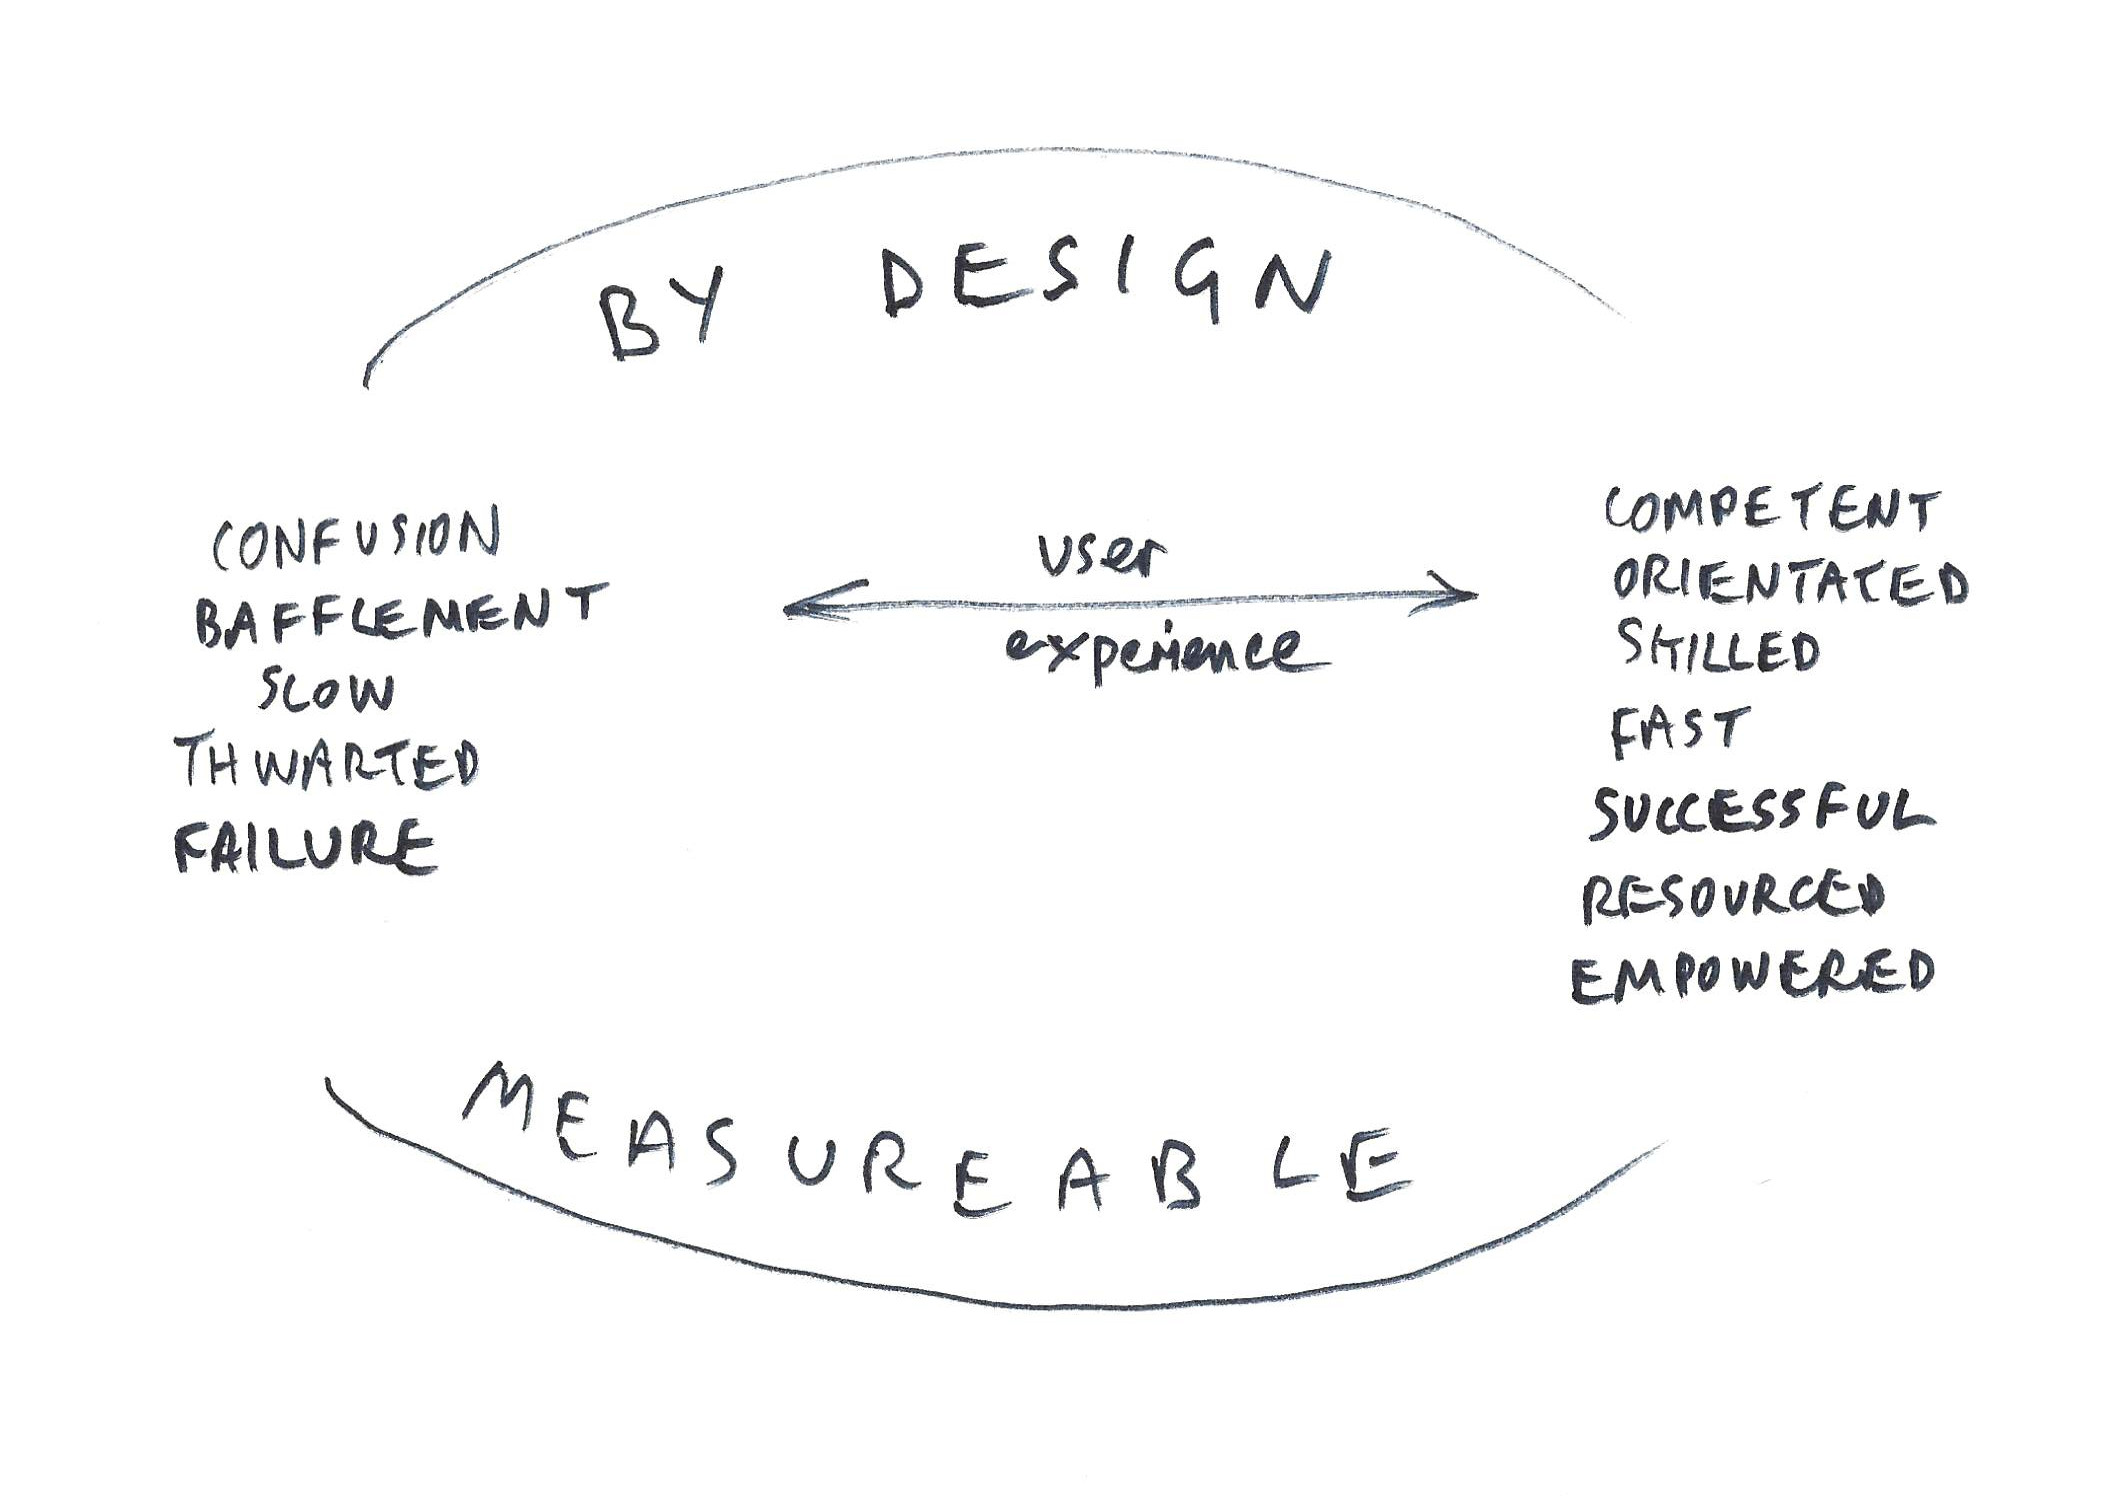 BY DESIGN
CONFUSION
BAFFLEMENT
SLOW
THWARTED
FAILURE
user
experience
COMPETENT
ORIENTATED
SKILLED
FAST
SUCCESSFUL
RESOURCED
EMPOWERED
MEASUREABLE